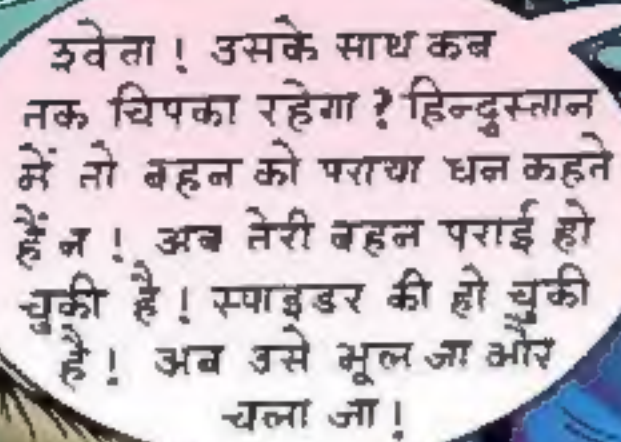 श्वेता ! उसके साथ कब
तक चिपका रहेगा ? हिन्दुस्तान
में तो बहन को पराया धन कहते
हैं न ! अब तेरी बहन पराई हो
चुकी है ! स्पाइडर की हो चुकी
है ! अब उसे भूल जा और
चला जा !